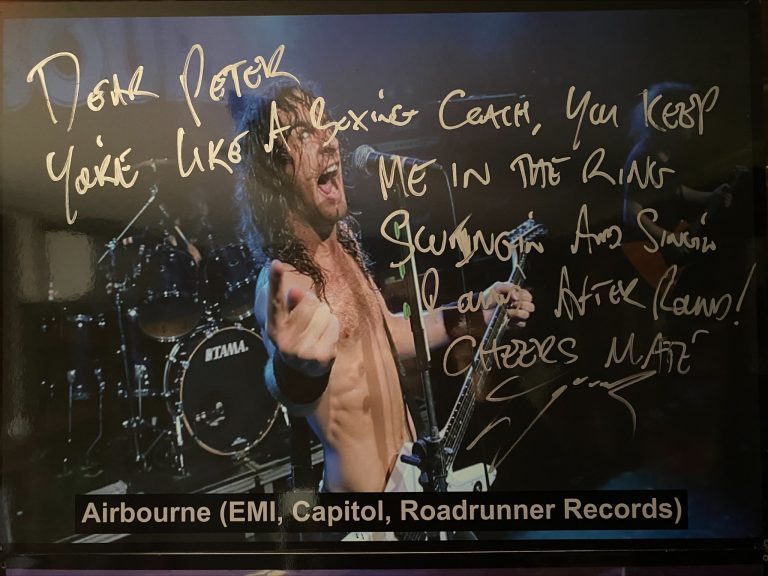 DEAR PETER
YOU'RE LIKE A BOXING COACH, YOU KEEP
ME IN THE RING
SWINGIN AND SINGIN
ROUND AFTER ROUND!
CHEERS MATE
TAMA.
Airbourne (EMI, Capitol, Roadrunner Records)